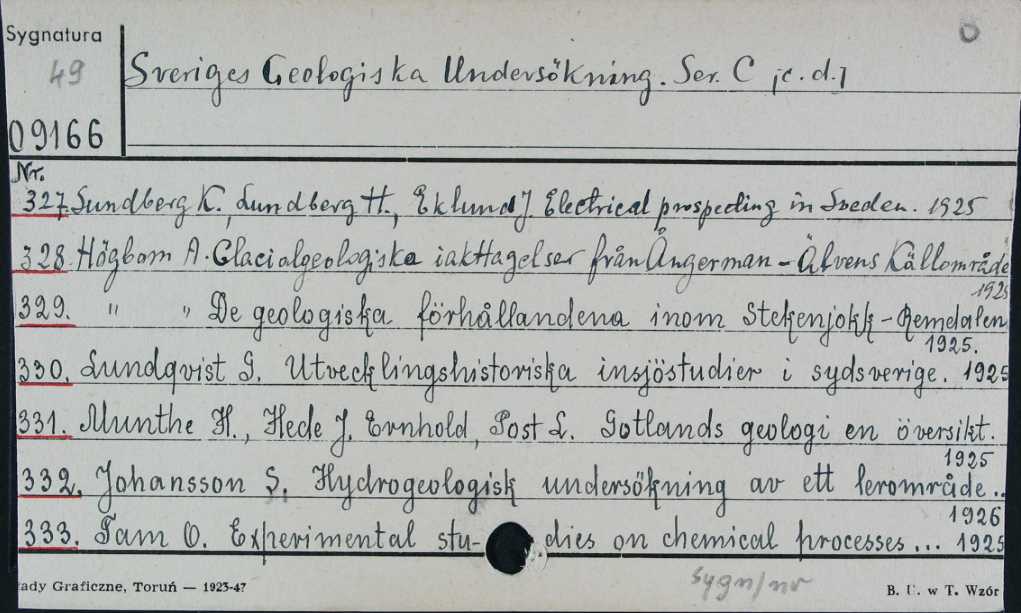 Sygnatura
49
09166
Sveriges Geologiska Undersökning. Ser. C [c.d.]
O
Nr.
327. Sundberg K., Lundberg H., Eklund J. Electrical prospecting in Sveden. 1925
328. Högbom A. Glacialgeologiska iakttagelser från Ångerman - Älvens Källområde
1925
329. " " De geologiska förhållandena inom Stekenjokk - Remdalen
1925.
330. Lundqvist G. Utvecklingshistoriska insjöstudier i sydsverige. 1925
331. Munthe H., Hede J. Ernhold, Post L. Gotlands geologi en översikt.
1925
332. Johansson S. Hydrogeologisk undersökning av ett lerområde..
1926
333. Tam O. Experimental studies on chemical processes... 1925
sygn/nr
ady Graficzne, Toruń — 1923-47
B. U. w T. Wzór